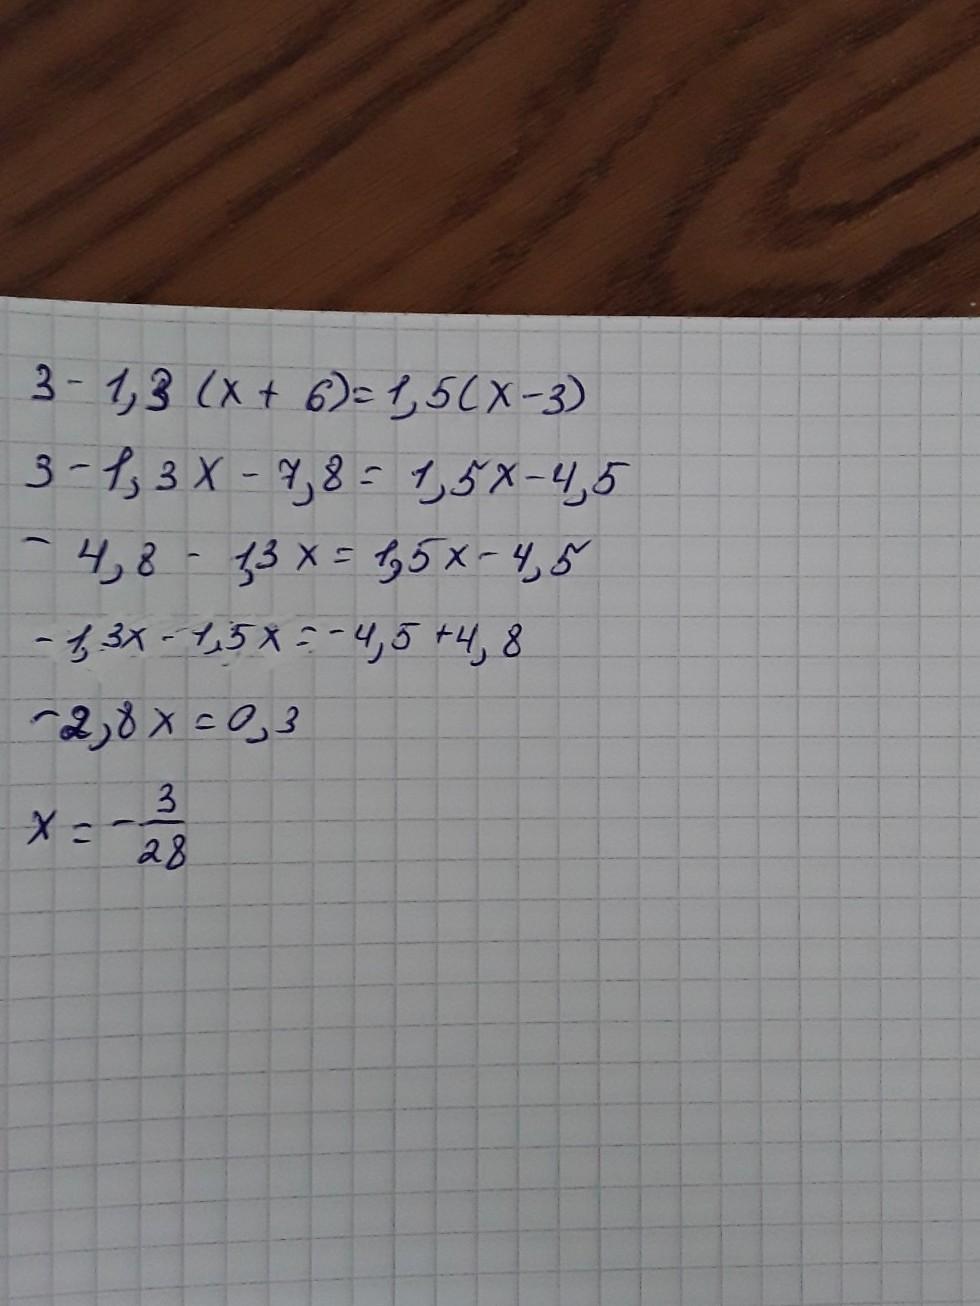 3 - 1,3 (x + 6) = 1,5(x - 3)
3 - 1,3x - 7,8 = 1,5x - 4,5
- 4,8 - 1,3x = 1,5x - 4,5
- 1,3x - 1,5x = -4,5 + 4,8
-2,8x = 0,3
x = - 3/28